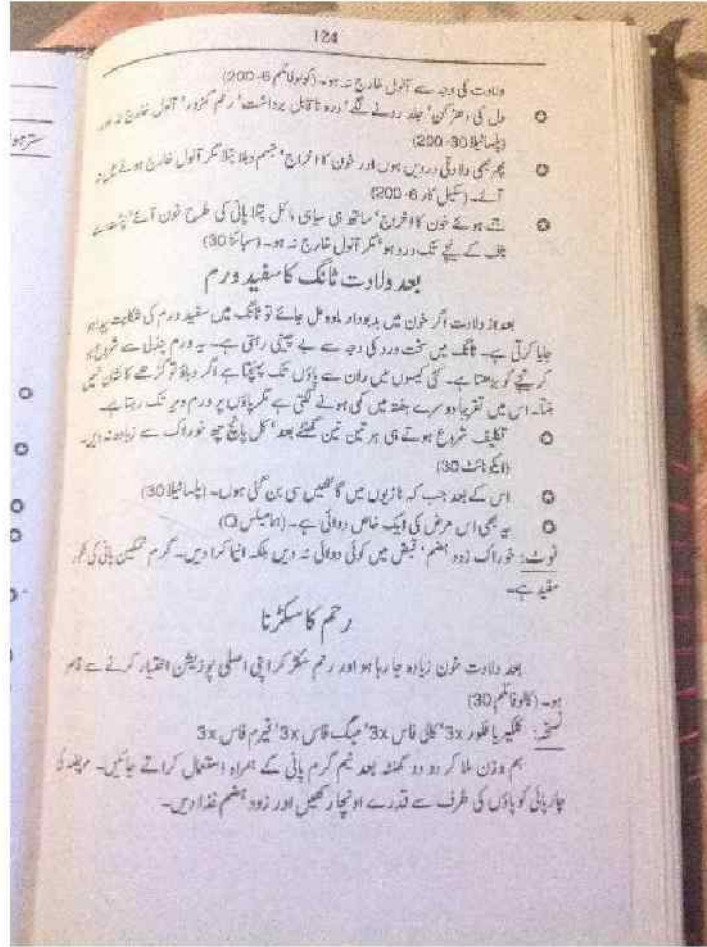 124
ولادت کی وجہ سے آنول خارج نہ ہو۔ (کولوفائلم 6-200)
دل کی دھڑکن' جلد رونے لگے' درد ناقابل برداشت' رحم کمزور' آنول خارج نہ ہو۔
(پلساٹیلا 30-200)
پھر بھی ولادتی دردیں ہوں اور خون کا اخراج' جسم دبلا پتلا مگر آنول خارج ہونے میں نہ
آئے۔ (سیکیل کار 6-200)
جمے ہوئے خون کا اخراج' ساتھ ہی سیاہی مائل پتلا پانی کی طرح خون آئے'
ناف کے نیچے تک درد ہو' مگر آنول خارج نہ ہو۔ (سبائنا 30)
بعد ولادت ٹانگ کا سفید ورم
بعد از ولادت اگر خون میں بدبودار مادہ مل جائے تو ٹانگ میں سفید ورم کی شکایت پیدا ہو
جایا کرتی ہے۔ ٹانگ میں سخت درد کی وجہ سے بے چینی رہتی ہے۔ یہ ورم پنڈلی سے شروع ہو
کر نیچے کو بڑھتا ہے۔ کئی کیسوں میں ران سے پاؤں تک پہنچتا ہے اگر دباؤ تو گڑھے کا نشان نہیں
بنتا۔ اس میں تقریباً دوسرے ہفتہ میں کمی ہونے لگتی ہے مگر پاؤں پر ورم دیر تک رہتا ہے۔
تکلیف شروع ہوتے ہی ہر تین تین گھنٹے بعد' کل پانچ چھ خوراک سے زیادہ نہ دیں۔
(ایکونائٹ 30)
اس کے بعد جب کہ نازیوں میں گانٹھیں سی بن گئی ہوں۔ (پلساٹیلا 30)
یہ بھی اس مرض کی ایک خاص دوائی ہے۔ (ہمامیلس Q)
نوٹ: خوراک زود ہضم' قبض میں کوئی دوائی نہ دیں بلکہ انیما کرا دیں۔ گرم نمکین پانی کی ٹکور
مفید ہے۔
رحم کا سکڑنا
بعد ولادت خون زیادہ جا رہا ہو اور رحم سکڑ کر اپنی اصلی پوزیشن اختیار کرنے سے قاصر
ہو۔ (کالوفائلم 30)
نسخہ: کلکیریا فلور 3x' کالی فاس 3x' میگ فاس 3x' فیرم فاس 3x
ہم وزن ملا کر دو دو گھنٹہ بعد نیم گرم پانی کے ہمراہ استعمال کراتے جائیں۔ مریضہ کی
چارپائی کو پاؤں کی طرف سے قدرے اونچا رکھیں اور زود ہضم غذا دیں۔